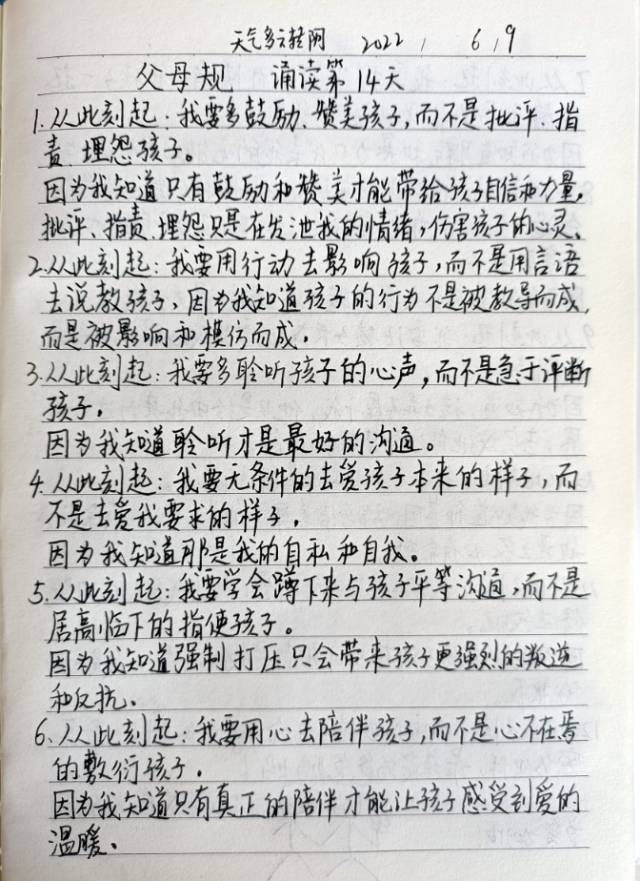 天气多云转阴 2022, 6,9
父母规 诵读第14天
1.从此刻起:我要多鼓励、赞美孩子,而不是批评、指
责、埋怨孩子。
因为我知道只有鼓励和赞美才能带给孩子自信和力量,
批评、指责、埋怨只是在发泄我的情绪,伤害孩子的心灵。
2.从此刻起:我要用行动去影响孩子,而不是用言语
去说教孩子,因为我知道孩子的行为不是被教导而成,
而是被影响和模仿而成。
3.从此刻起:我要多聆听孩子的心声,而不是急于评断
孩子。
因为我知道聆听才是最好的沟通。
4.从此刻起:我要无条件的去爱孩子本来的样子,而
不是去爱我要求的样子。
因为我知道那是我的自私和自我。
5.从此刻起:我要学会蹲下来与孩子平等沟通,而不是
居高临下的指使孩子。
因为我知道强制打压只会带来孩子更强烈的叛逆
和反抗。
6.从此刻起:我要用心去陪伴孩子,而不是心不在焉
的敷衍孩子。
因为我知道只有真正的陪伴才能让孩子感受到爱的
温暖。